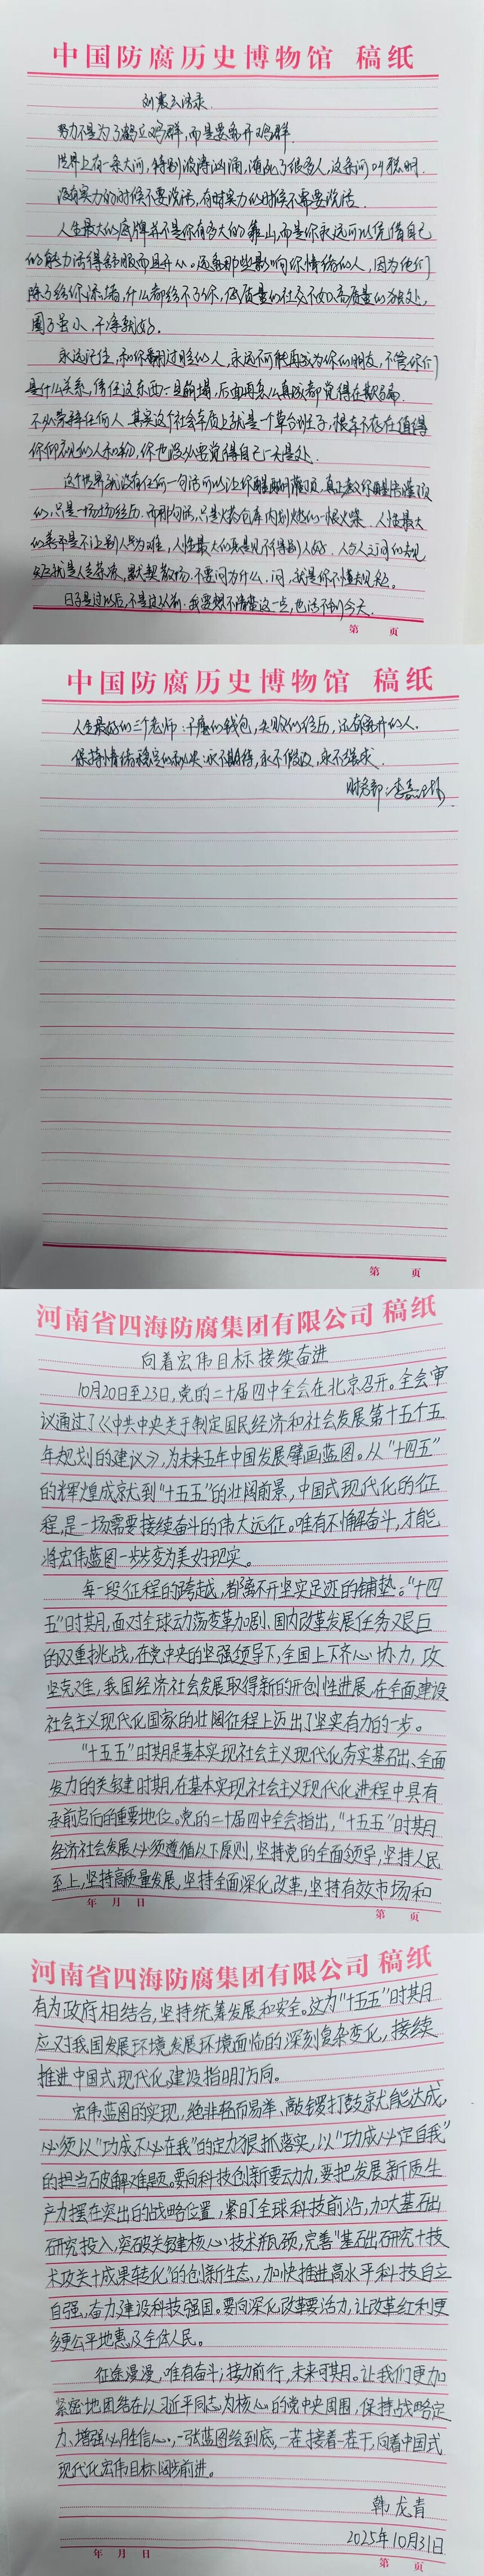 中国防腐历史博物馆 稿纸
刘震云语录.
努力不是为了鹤立鸡群,而是要离开鸡群.
世界上有一条大河,特别波涛汹涌,淹死了很多人,这条河叫聪明.
没有实力的时候不要说话,有财实力的时候不需要说话.
人生最大的底牌并不是你有多大的靠山,而是你永远可以凭借自己
的能力活得舒服而且开心。远离那些影响你情绪的人,因为他们
除了给你添堵,什么都给不了你,低质量的社交不如高质量的独处,
圈子虽小,干净就好.
永远记住,和你翻过脸的人,永远不可能再成为你的朋友,不管你们
是什么关系,信任这东西一旦崩塌,后面再怎么真诚都觉得在欺骗.
不必崇拜任何人 其实这个社会本质上就是一个草台班子,根本不存在值得
你仰视的人和物,你也没必要觉得自己一无是处.
这个世界我没有任何一句话可以让你醍醐灌顶,真正教你醍醐灌顶
的,只是一场场经历,而那句话,只是火药仓库内划燃的一根火柴. 人性最大
的善不是不让别人为难,人性最大的恶是见不得别人好. 人与人之间的
就是人走茶凉,默契散场.不要问为什么.问,就是你不懂规矩.
日子是过以后,不是过从前.我要想不清楚这一点,也活不到今天.
第 页
中国防腐历史博物馆 稿纸
人生最好的三个老师:干瘪的钱包,失败的经历,还有离开的人.
保持情绪稳定的秘诀:永不期待,永不假设,永不强求.
财务部:李
第 页
河南省四海防腐集团有限公司 稿纸
向着宏伟目标接续奋进
10月20日至23日,党的二十届四中全会在北京召开。全会审
议通过了《中共中央关于制定国民经济和社会发展第十五个五
年规划的建议》,为未来五年中国发展擘画蓝图。从“十四五”
的辉煌成就到“十五五”的壮阔前景,中国式现代化的征
程,是一场需要接续奋斗的伟大远征。唯有不懈奋斗,才能
将宏伟蓝图一步步变为美好现实。
每一段征程的跨越,都离不开坚实足迹的铺垫。“十四
五”时期,面对全球动荡变革加剧、国内改革发展任务艰巨
的双重挑战,在党中央的坚强领导下,全国上下齐心协力,攻
坚克难,我国经济社会发展取得新的开创性进展,在全面建设
社会主义现代化国家的壮阔征程上迈出了坚实有力的一步。
“十五五”时期是基本实现社会主义现代化夯实基础、全面
发力的关键时期,在基本实现社会主义现代化进程中具有
承前启后的重要地位。党的二十届四中全会指出,“十五五”时期
经济社会发展必须遵循以下原则,坚持党的全面领导,坚持人民
至上,坚持高质量发展,坚持全面深化改革,坚持有效市场和
年 月 日
第 页
河南省四海防腐集团有限公司 稿纸
有为政府相结合,坚持统筹发展和安全。这为“十五五”时期
应对我国发展环境发展环境面临的深刻复杂变化,接续
推进中国式现代化建设指明了方向。
宏伟蓝图的实现,绝非轻而易举、敲锣打鼓就能达成,
必须以“功成不必在我”的定力狠抓落实,以“功成必定自我”
的担当破解难题。要向科技创新要动力,要把发展新质生
产力摆在突出的战略位置,紧盯全球科技前沿,加大基础
研究投入,突破关键核心技术瓶颈,完善“基础研究+技
术攻关+成果转化”的创新生态,加快推进高水平科技自立
自强,奋力建设科技强国。要向深化改革要活力,让改革红利更
多更公平地惠及全体人民。
征途漫漫,唯有奋斗;接力前行,未来可期。让我们更加
紧密地团结在以习近平同志为核心的党中央周围,保持战略定
力、增强必胜信心,一张蓝图绘到底,一茬接着一茬干,向着中国式
现代化宏伟目标阔步前进。
韩龙青
2025年10月31日
年 月 日
第 页